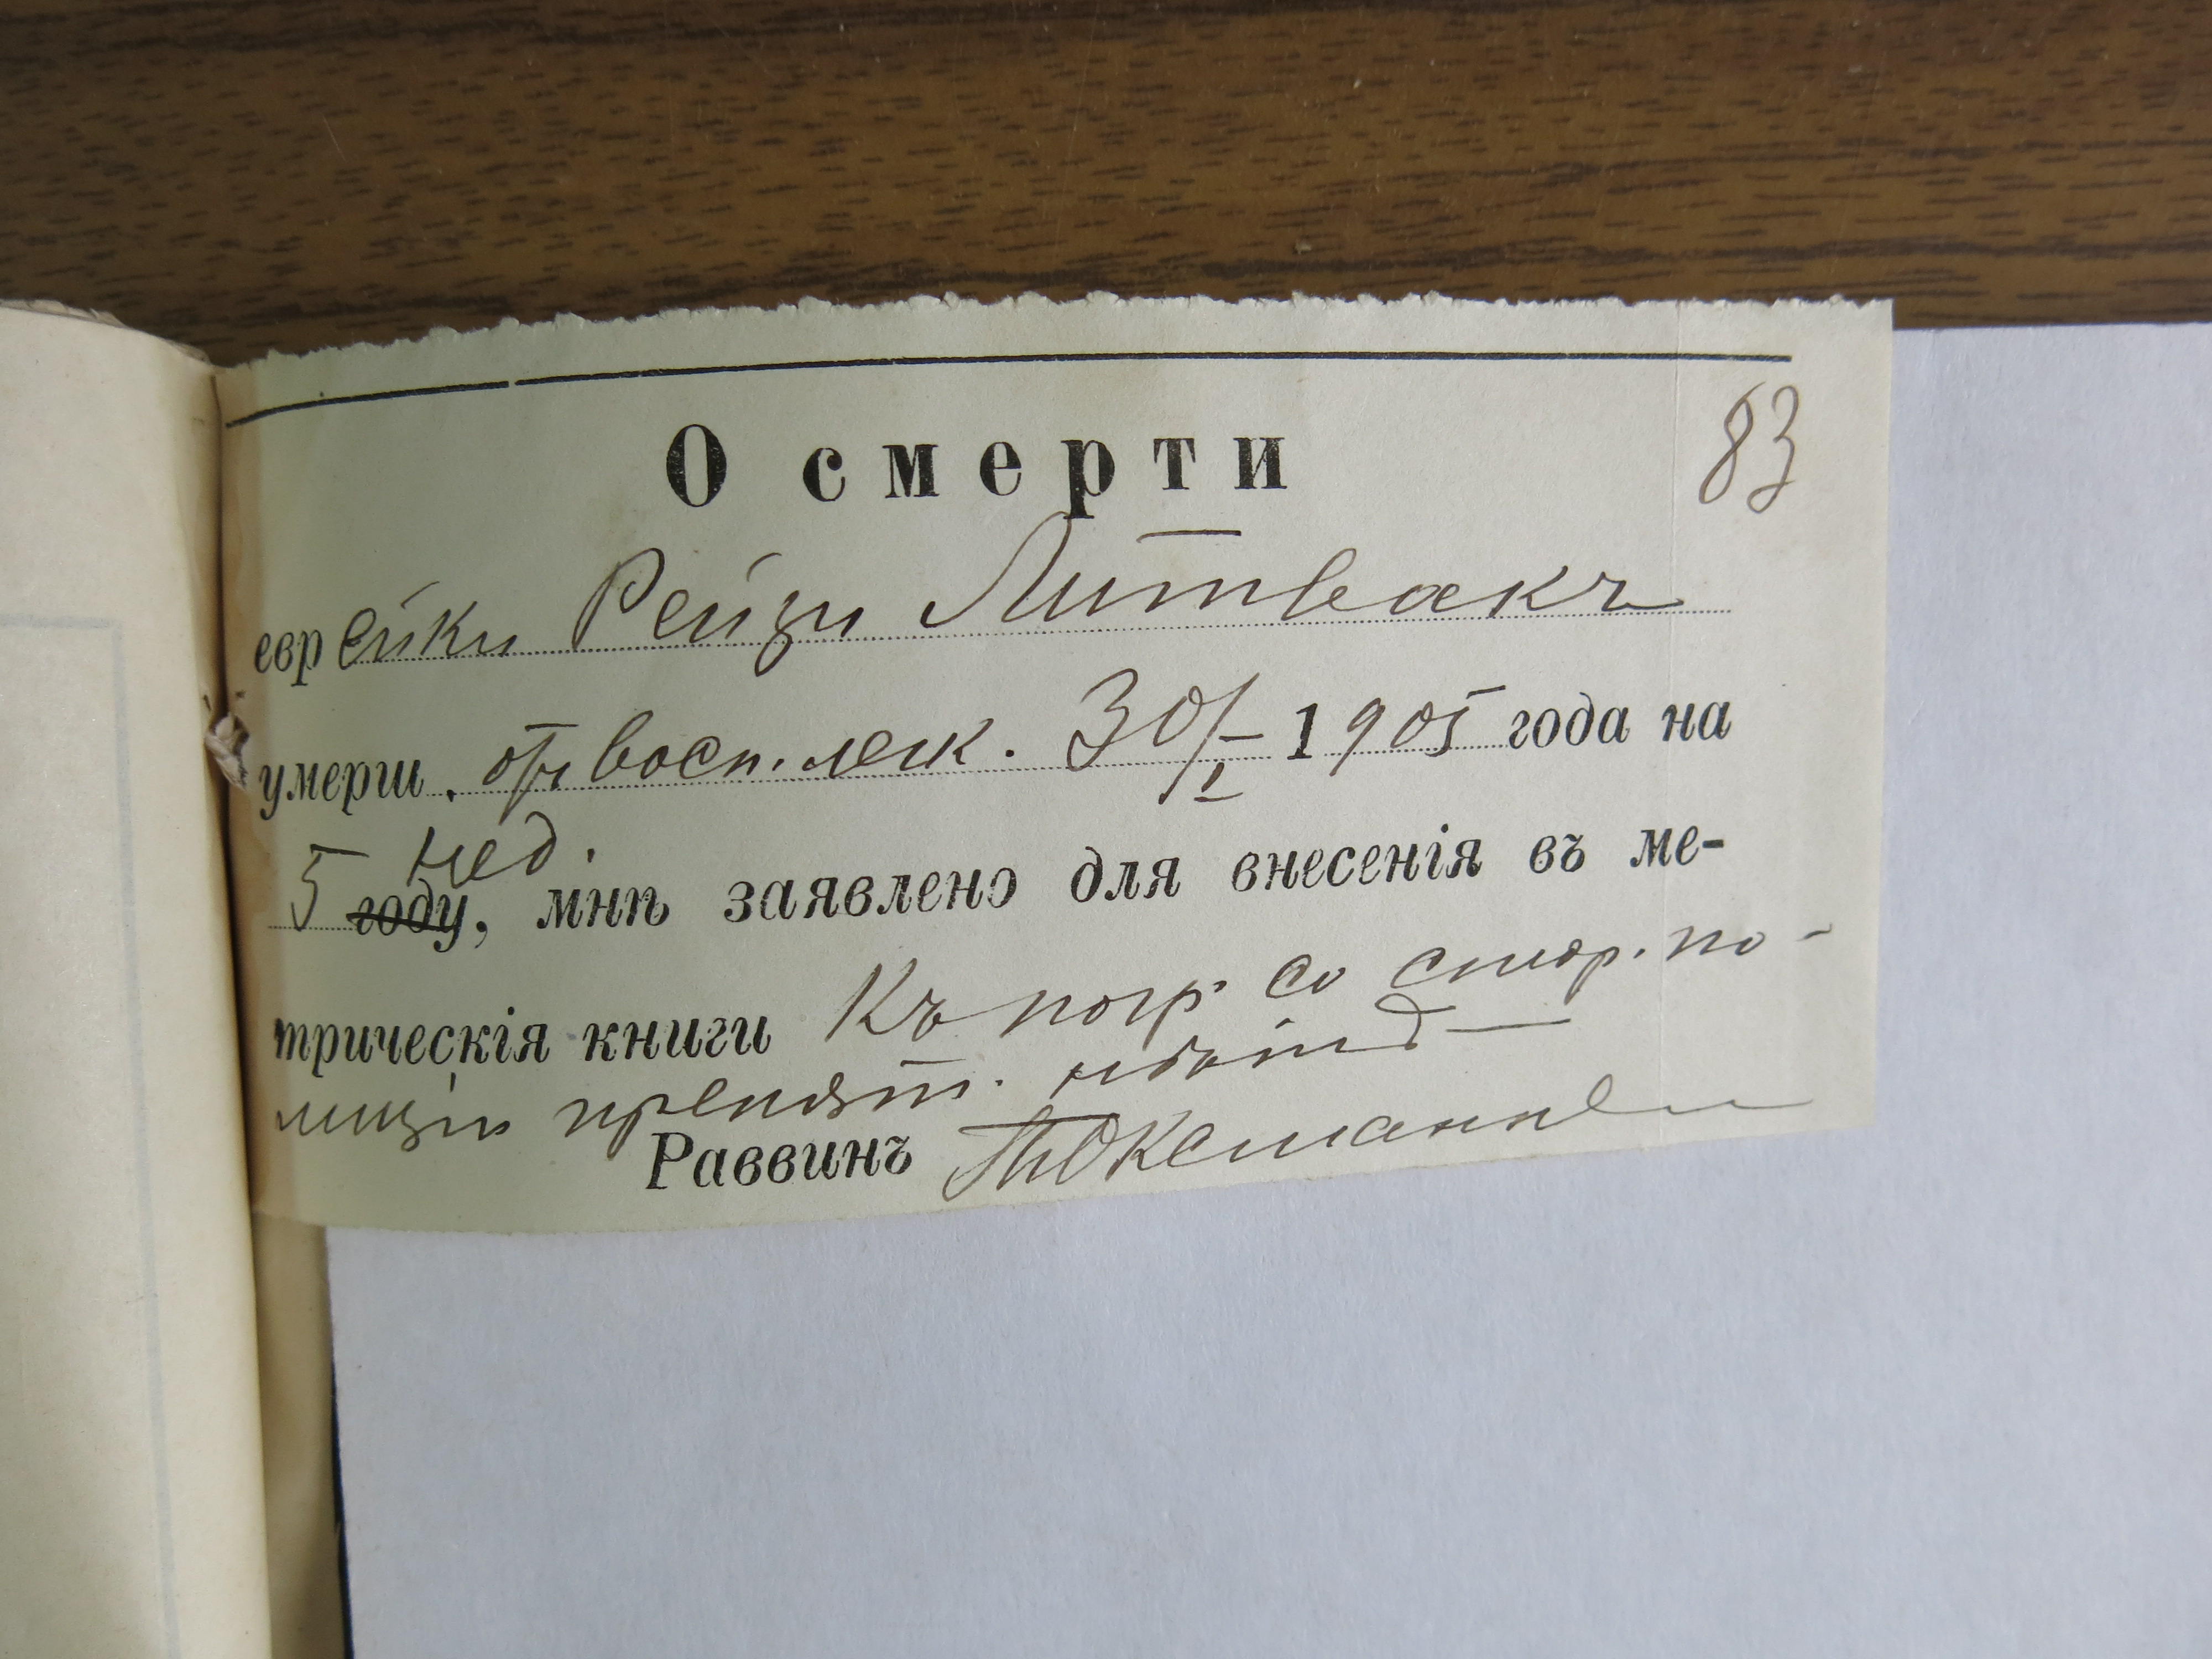 83
О смерти
еврейки Рейзи Литвакъ
умерш. отъ восп. легк. 30/I 1905 года на
5 нед.
году, мнѣ заявлено для внесенія въ ме-
трическія книги Къ погр. со стор. по-
лиціи препят. нѣтъ
Раввинъ